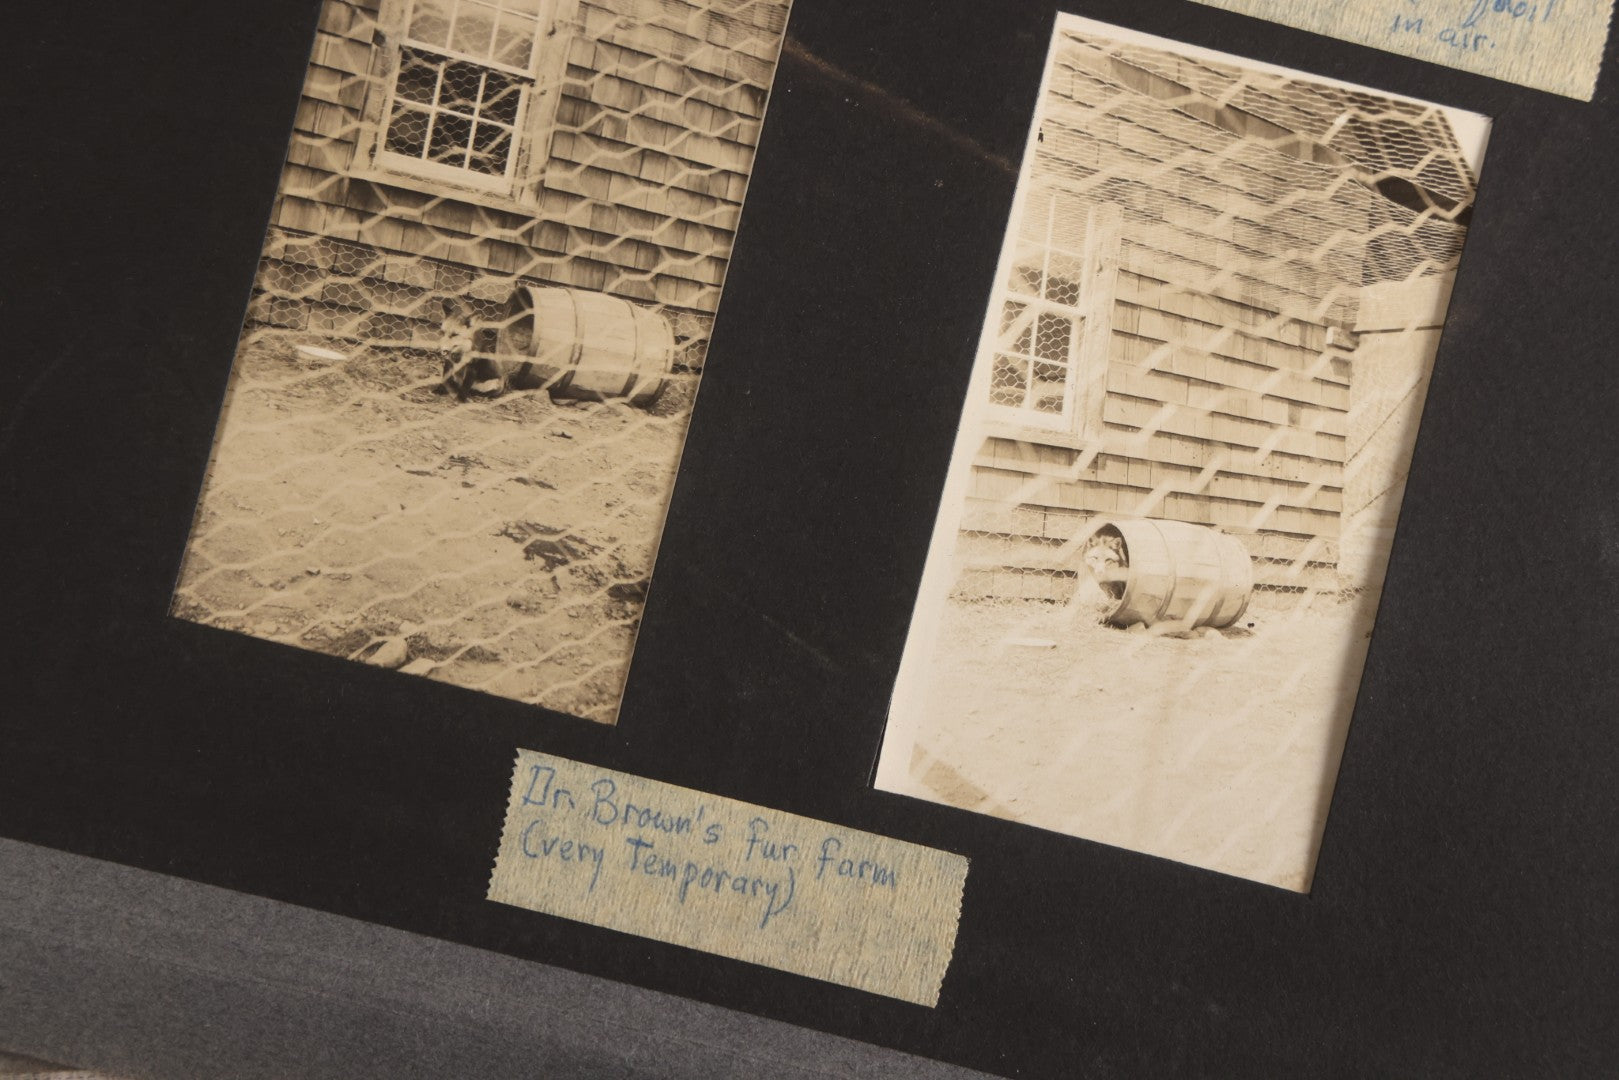 in air.
Dr. Brown's fur farm
(very Temporary)